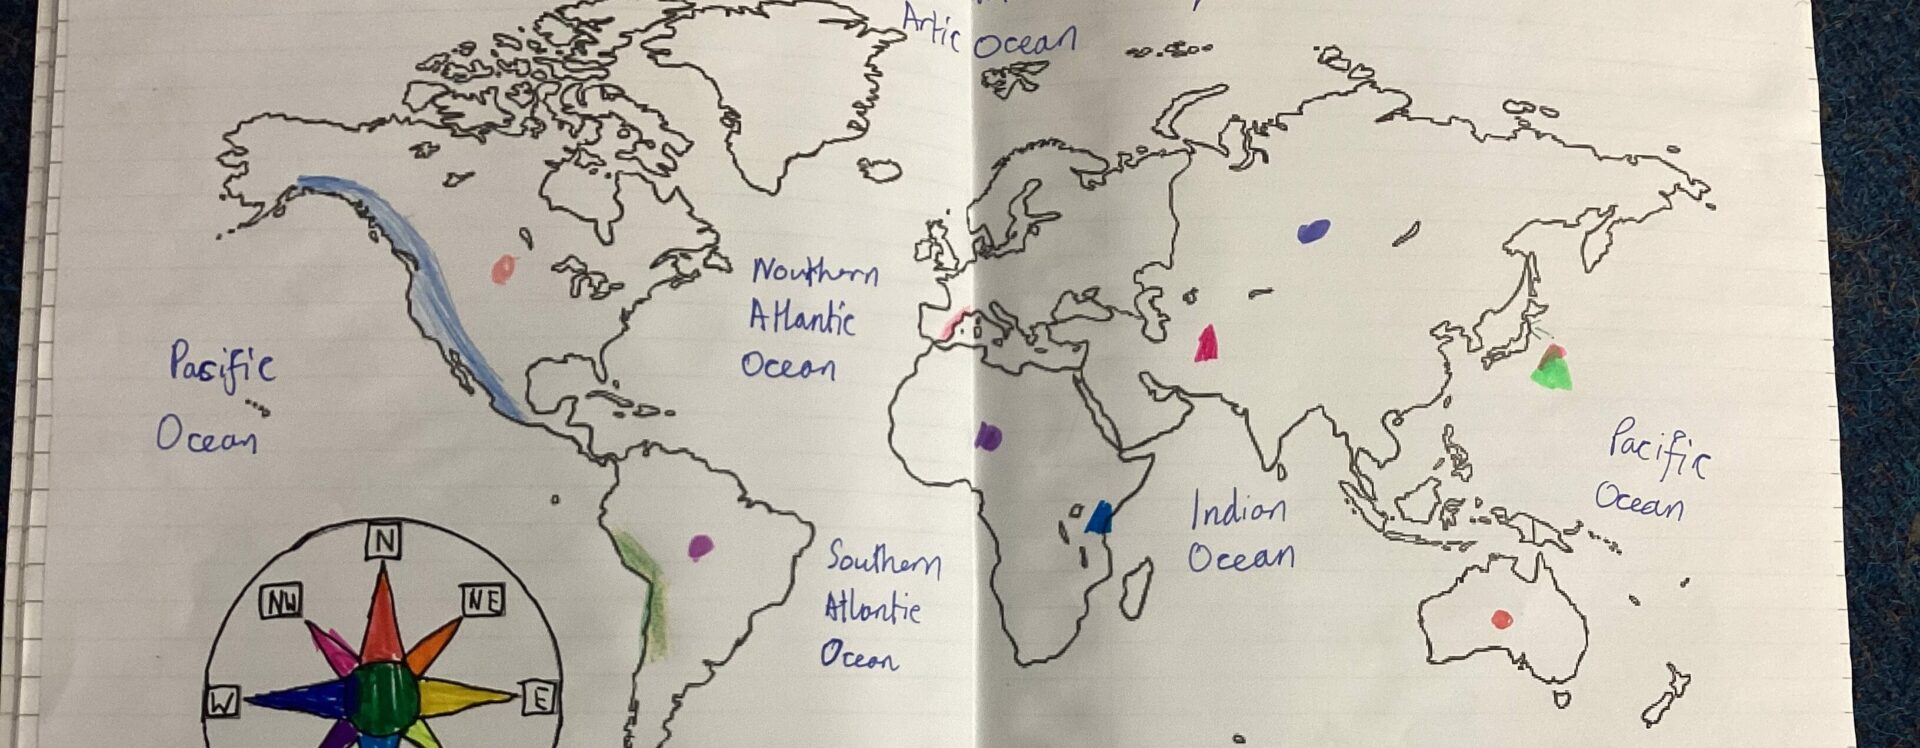 Artic Ocean
Nouthern
Atlantic
Ocean
Pasific
Ocean
Pacific
Ocean
Indian
Ocean
Southern
Atlantic
Ocean
N
NW
NE
W
E